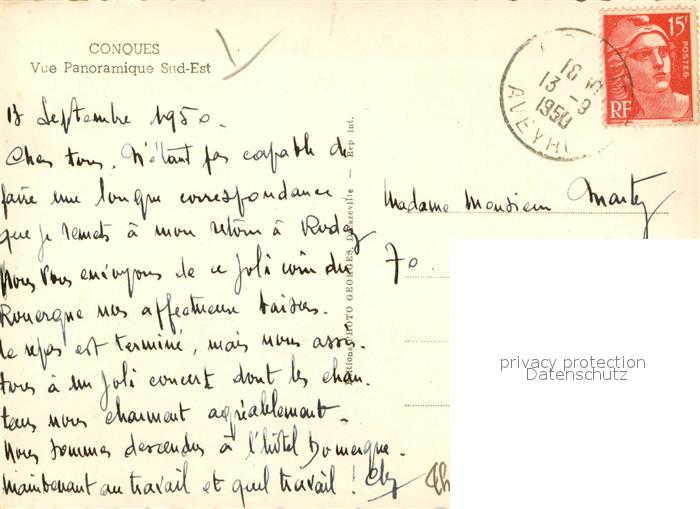 CONQUES
Vue Panoramique Sud-Est
13 Septembre 1950.
Chers tous, N'étant pas capable de
faire une longue correspondance
que je remets à mon retour à Rodez
Nous vous envoyons de ce joli coin du
Rouergue nos affectueux baisers.
Le repas est terminé, mais nous assis-
tons à un joli concert dont les chan-
teurs nous charment agréablement.
Nous sommes descendus à l'hôtel Domergue.
Maintenant au travail et quel travail !
PHOTO GEORGES, Decazeville — Rep Int.
15F
POSTES
RF
18 H
13 -9
1950
AVEYRON
Madame Monsieur
70.
privacy protection
Datenschutz